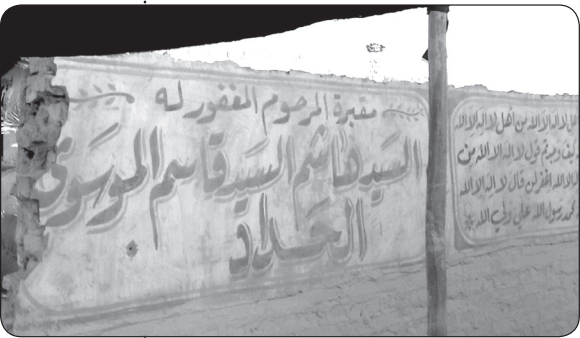 مقبرة المرحوم المغفور له
السيد هاشم السيد قاسم الموسوي
الحداد
لا اله الا الله من أهل لا اله الا الله
كيف وجدتم قول لا اله الا الله من
لا اله الا الله اغفر لمن قال لا اله الا الله
محمد رسول الله علي ولي الله